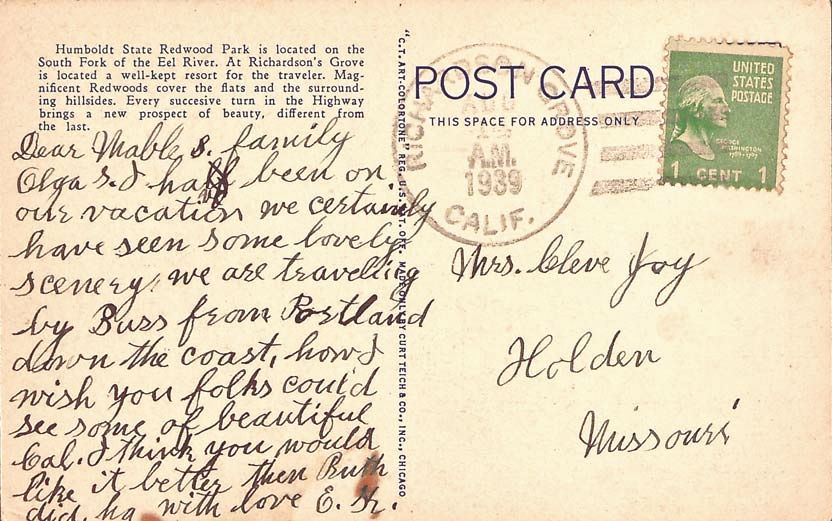 Humboldt State Redwood Park is located on the
South Fork of the Eel River. At Richardson's Grove
is located a well-kept resort for the traveler. Mag-
nificent Redwoods cover the flats and the surround-
ing hillsides. Every succesive turn in the Highway
brings a new prospect of beauty, different from
the last.
Dear Mable & family
Olga & I have been on
our vacation we certainly
have seen some lovely
scenery, we are travelling
by Buss from Portland
down the coast, how I
wish you folks could
see some of beautiful
Cal. I think you would
like it better then Ruth
did, ha with love E.
"C.T. ART-COLORTONE" REG. U.S. PAT. OFF. MADE ONLY BY CURT TEICH & CO., INC., CHICAGO
POST CARD
THIS SPACE FOR ADDRESS ONLY
RICHARDSON GROVE
A.M.
1939
CALIF.
UNITED
STATES
POSTAGE
GEORGE
WASHINGTON
1 CENT 1
Mrs. Cleve Joy
Holden
Missouri